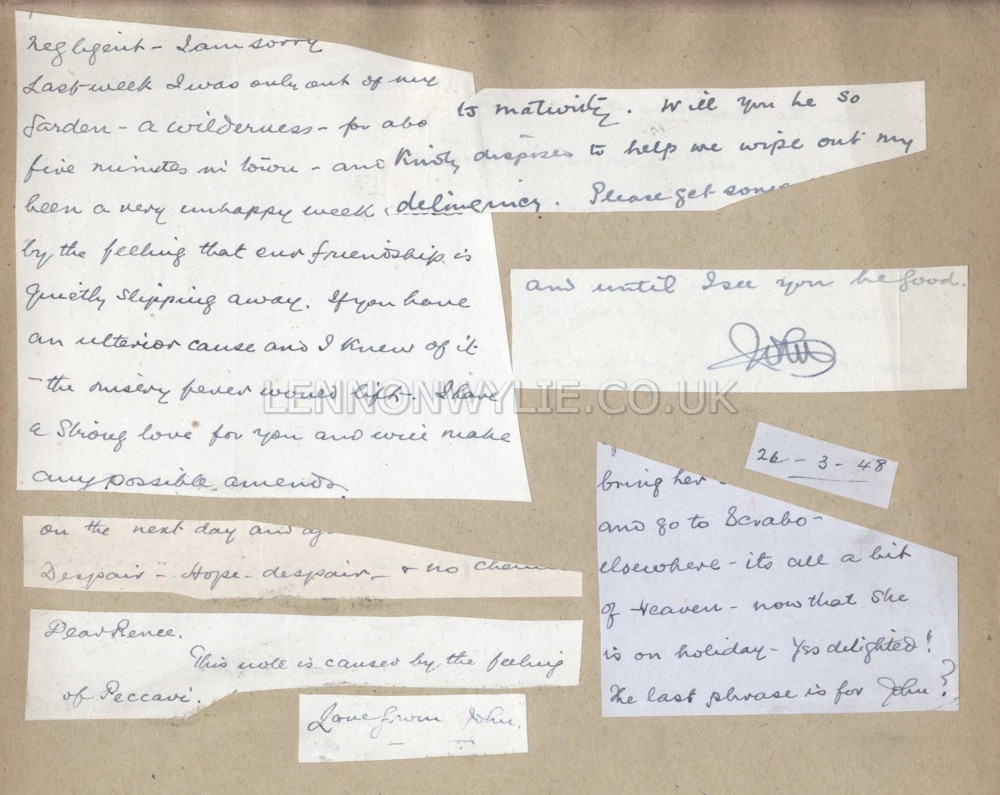 negligent - I am sorry
Last week I was only out of my
garden - a wilderness - for abo
five minutes in town - and
been a very unhappy week,
by the feeling that our friendship is
quietly slipping away. If you have
an ulterior cause and I knew of it
- the misery fever would lift. I have
a strong love for you and will make
any possible amends.
to maturity. Will you be so
kindly disposed to help me wipe out my
delinquency. Please get some
and until I see you be good.
John
LENNONWYLIE.CO.UK
26-3-48
bring her
and go to Scrabo-
elsewhere - its all a bit
of Heaven - now that she
is on holiday - Yes delighted!
The last phrase is for John?
on the next day and ag
Despair - Hope - despair - + no
Dear Renee.
This note is caused by the feeling
of Peccavi.
Love from John.